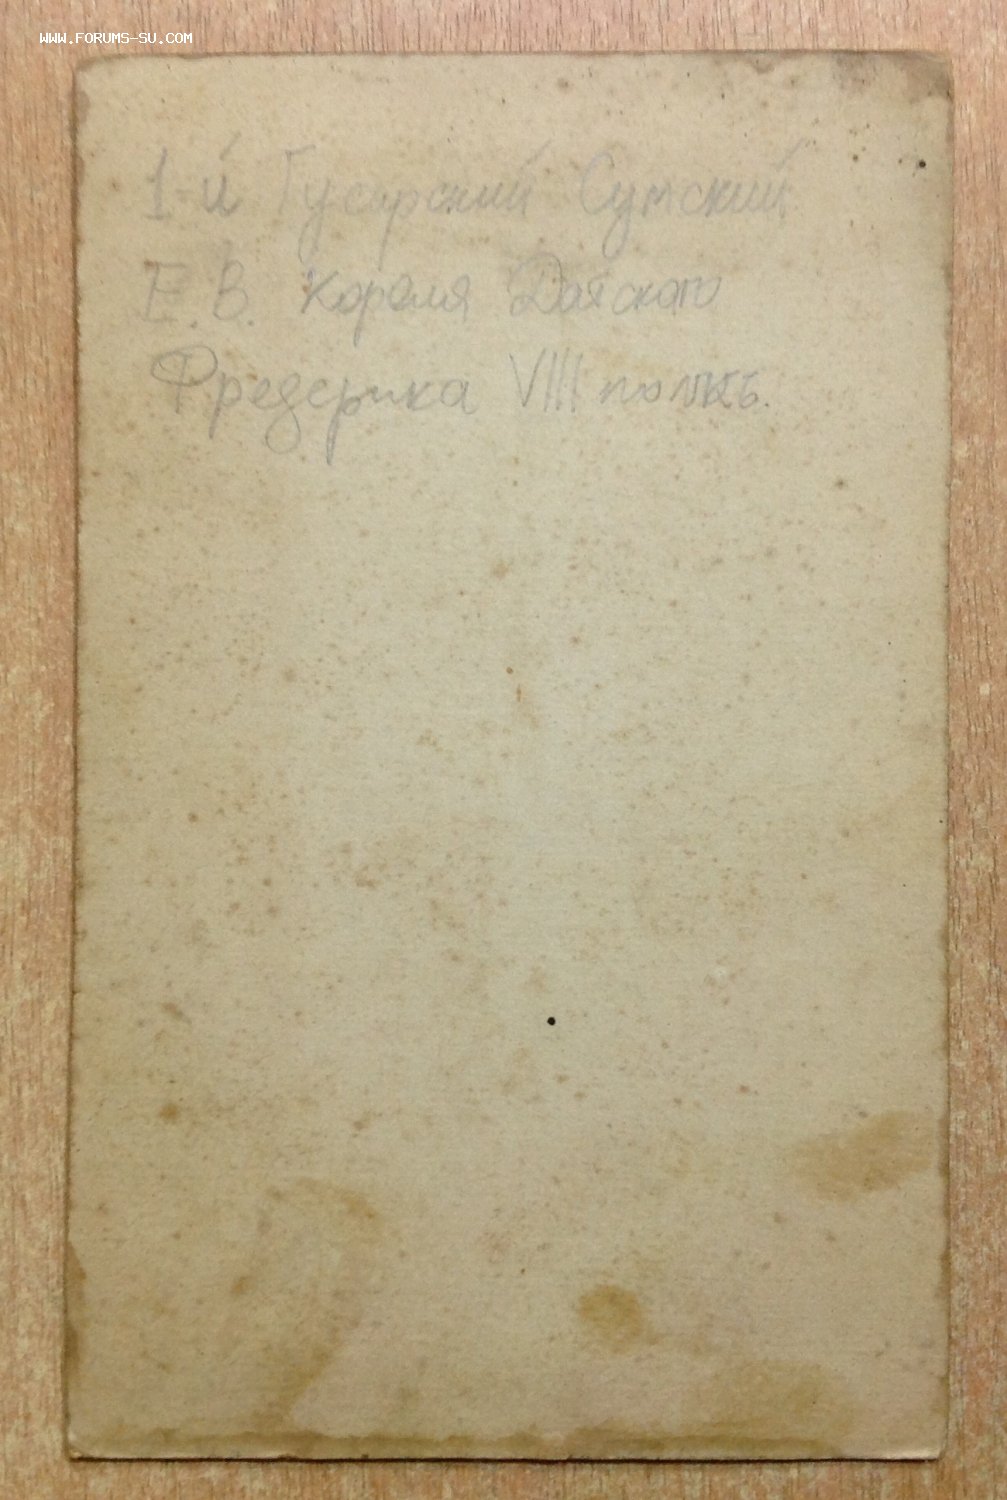 WWW.FORUMS-SU.COM
1-й Гусарский Сумский
Е.В. Короля Датского
Фредерика VIII полкъ.